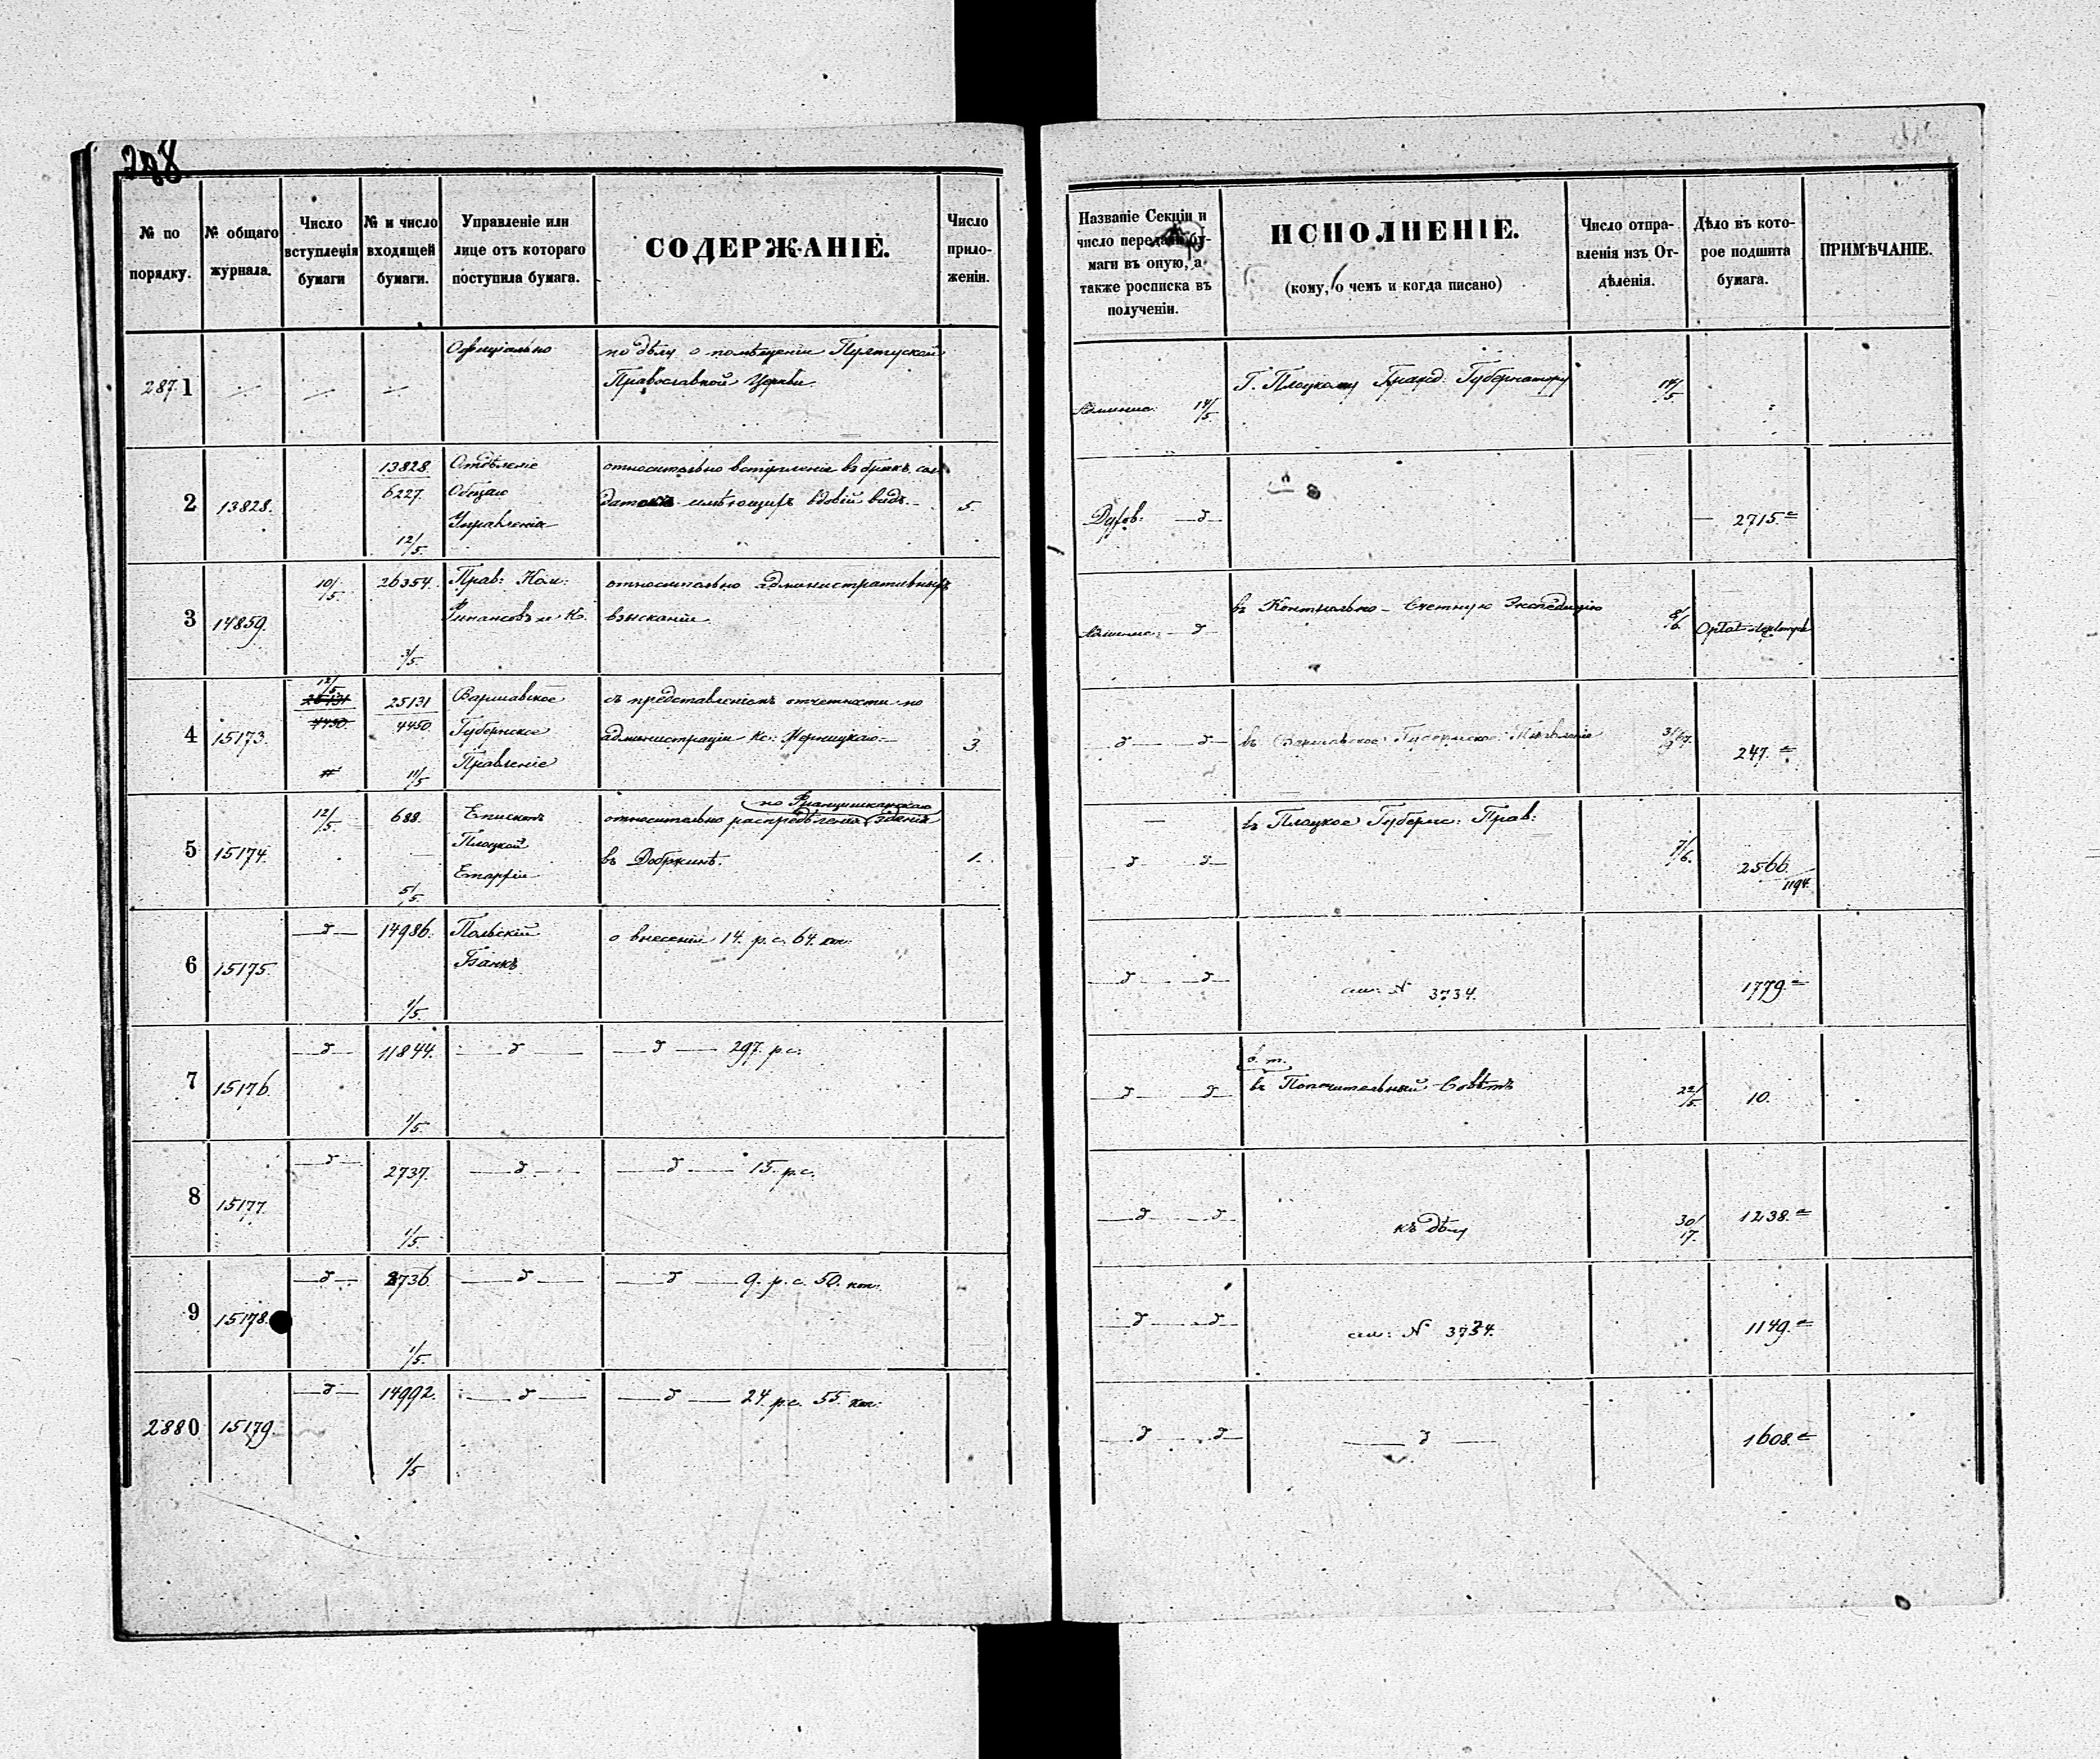 288
№ по порядку.
№ общаго журнала.
Число вступленія бумаги
№ и число входящей бумаги.
Управленіе или лице отъ котораго поступила бумага.
СОДЕРЖАНІЕ.
Число приложеніи.
Названіе Секціи и число передачи бумаги въ оную, а также росписка въ полученіи.
ИСПОЛНЕНІЕ.
(кому, о чемъ и когда писано)
Число отправленія изъ Отдѣленія.
Дѣло въ которое подшита бумага.
ПРИМѢЧАНІЕ.
287.1
Официально
по дѣлу о помѣщеніи Пултуской
Православной Церкви
14/5
Г. Плоцкому Гражд. Губернатору
14/5
2
13828.
13828.
6227.
12/5.
Отдѣленіе
Общаго
Управленія
относительно вступленія въ бракъ сол-
датокъ имѣющихъ вдовій видъ.
5.
Духов.
2715.
3
14859.
10/5.
26354.
3/5.
Прав: Ком:
Финансовъ и К.
относительно административныхъ
взысканіи.
въ Контрольно-Счетную Экспедицію
8/6.
4
15173.
12/5
25131
4450.
25131
4450
11/5
Варшавское
Губернское
Правленіе
съ представленіемъ отчетности по
администраціи
3.
въ Варшавское Губернское Правленіе
247.
5
15174.
12/5.
688.
5/5.
Епископъ
Плоцкой
Епархіи
по Францишканскаго
относительно распредѣленія зданія
въ Добржинѣ.
1.
въ Плоцкое Губернс: Прав:
7/6.
2566.
1194.
6
15175.
14986.
1/5.
Польскій
Банкъ
о внесеніи 14. р.с. 64. коп:
см: № 3734.
1779.
7
15176.
11844.
1/5.
297. р.с.
въ Попечительный Совѣтъ
22/5.
10.
8
15177.
2737.
1/5.
15. р.с.
къ дѣлу
30/17.
1238.
9
15178.
2736.
1/5.
9. р.с. 50. коп:
см: № 3734.
1149.
2880
15179.
14992.
1/5
24. р.с. 55. коп:
1608.